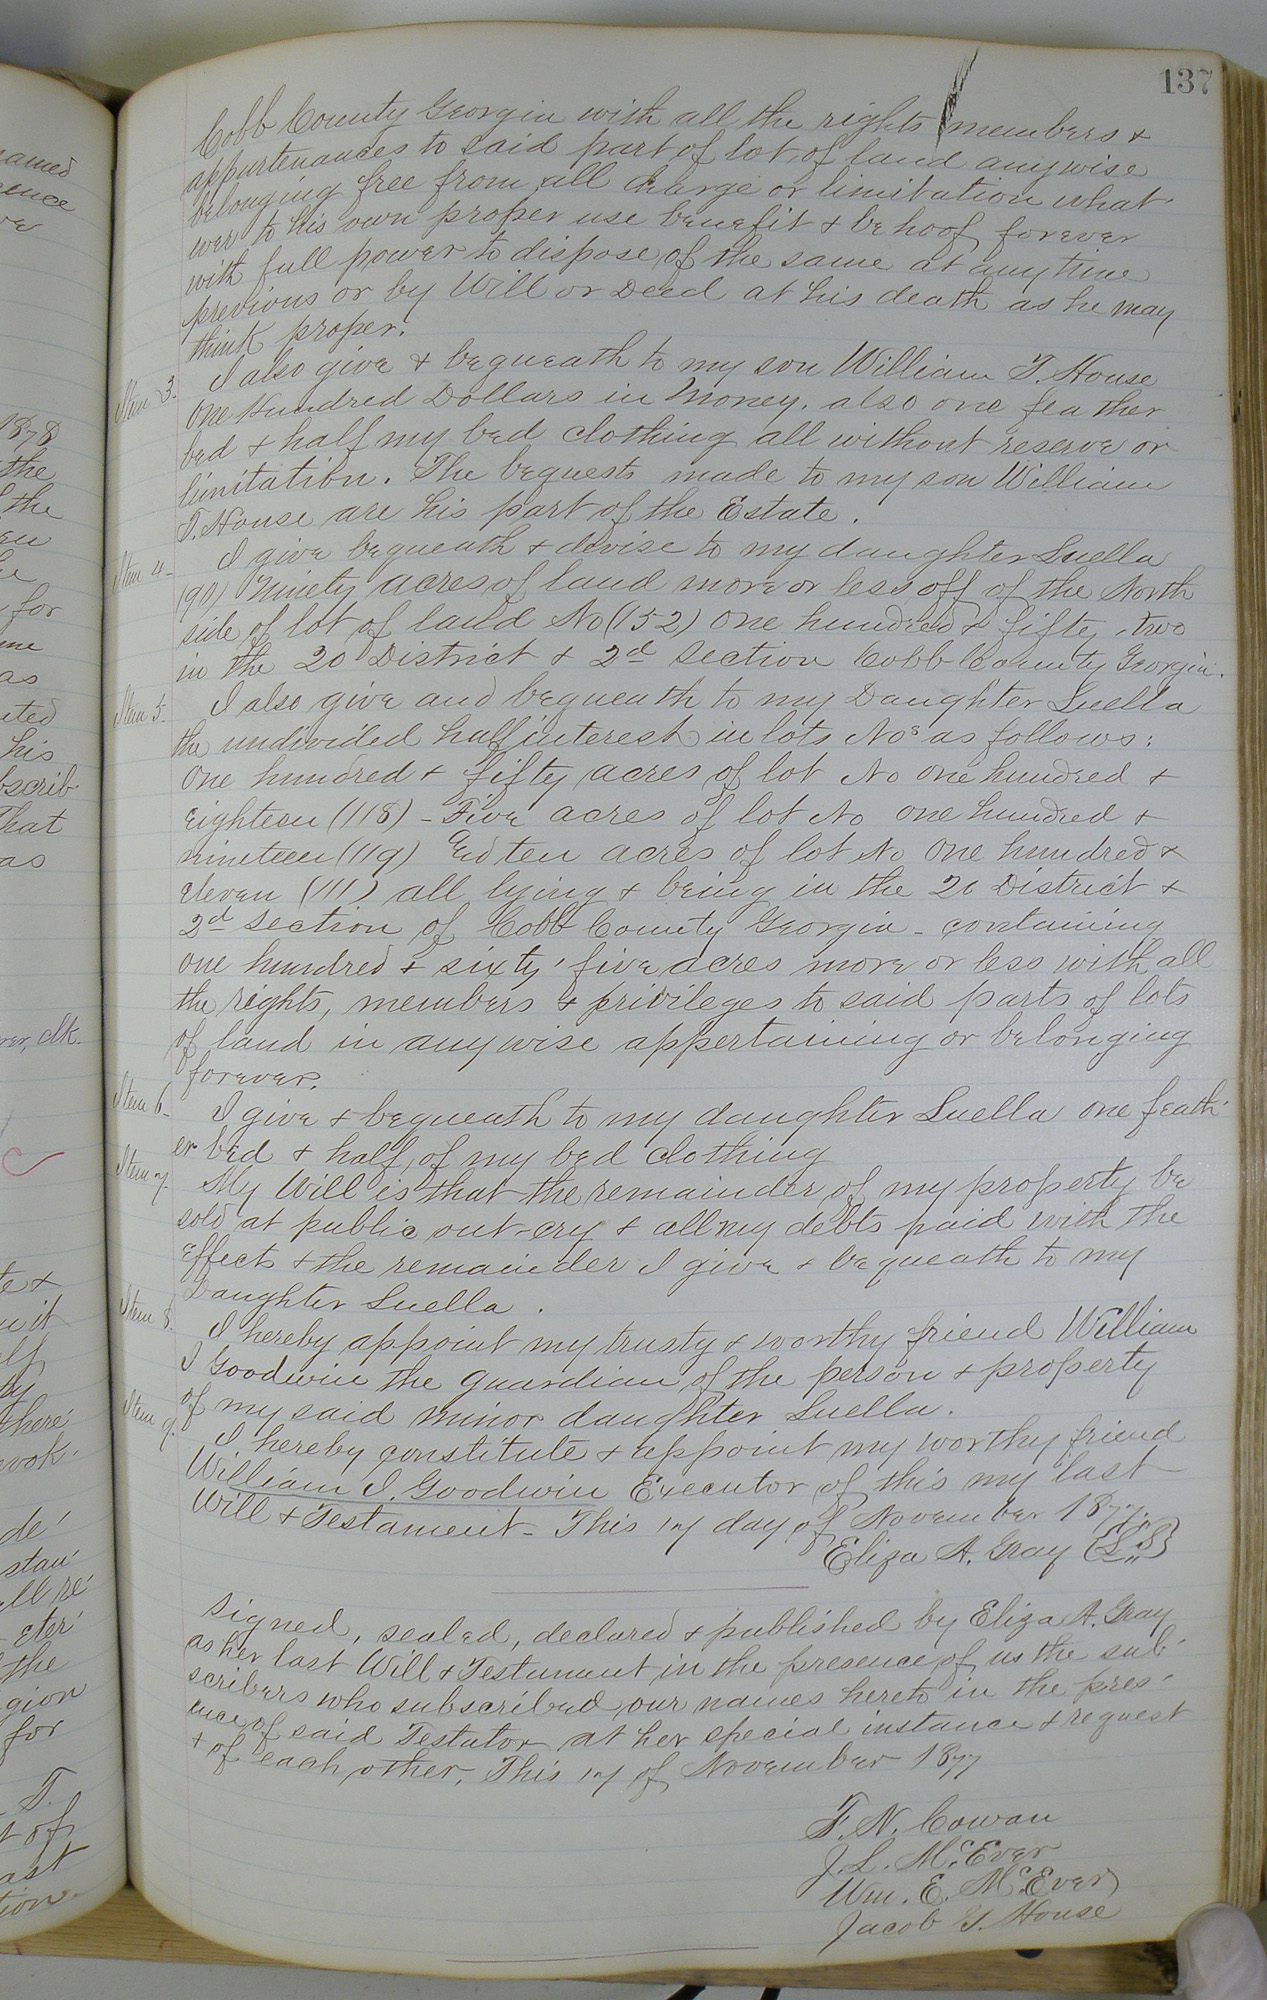 137
Cobb County Georgia with all the rights members &
appurtenances to said part of lot of land anywise
belonging free from all charge or limitation what-
ever to his own proper use benefit & behoof forever
with full power to dispose of the same at any time
previous or by Will or Deed at his death as he may
think proper.
Item 3. I also give & bequeath to my son William T. House
One Hundred Dollars in Money. also one feather
bed & half my bed clothing all without reserve or
limitation. The bequests made to my son William
T. House are his part of the Estate.
Item 4- I give bequeath & devise to my daughter Luella
(90) Ninety acres of land more or less off of the North
side of lot of land No (152) One hundred & fifty-two
in the 20 District & 2d Section Cobb County Georgia.
Item 5- I also give and bequeath to my Daughter Luella
the undivided half interest in lots Nos as follows:
One hundred & fifty acres of lot No one hundred &
Eighteen (118) - Five acres of lot No one hundred &
nineteen (119) ten acres of lot No One hundred &
eleven (111) all lying & being in the 20 District &
2d Section of Cobb County Georgia - containing
one hundred & sixty-five acres more or less with all
the rights, members & privileges to said parts of lots
of land in anywise appertaining or belonging
forever.
Item 6- I give & bequeath to my daughter Luella one feath-
er bed & half of my bed clothing
Item 7. My Will is that the remainder of my property be
sold at public out-cry & all my debts paid with the
Effects & the remainder I give & bequeath to my
Daughter Luella.
Item 8. I hereby appoint my trusty & worthy friend William
I Goodwin the guardian of the person & property
of my said minor daughter Luella.
Item 9. I hereby constitute & appoint my worthy friend
William I. Goodwin Executor of this my last
Will & Testament- This 17 day of November 1877.
Eliza A. Gray {L.S}
Signed, sealed, declared & published by Eliza A. Gray
as her last Will & Testament in the presence of us the sub-
scribers who subscribed our names hereto in the pres-
ence of said Testator at her special instance & request
& of each other, This 17 of November 1877
F. N. Cowan
J. L. McEver
Wm. E. McEver
Jacob G. House